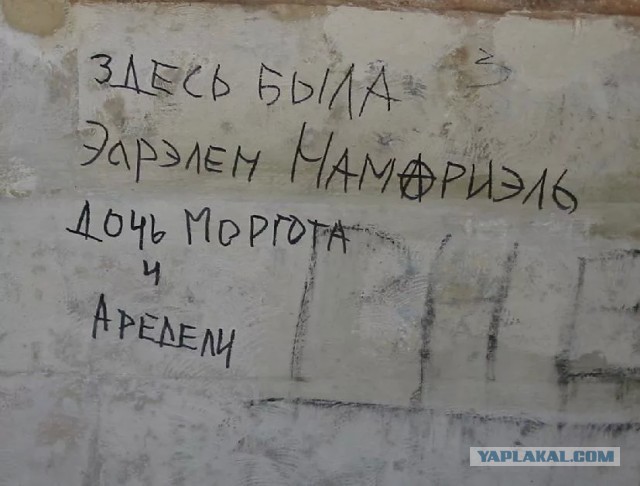 ЗДЕСЬ БЫЛА
Эарэлен НАМАРИЭЛЬ
ДОЧЬ МОРГОТА
И
АРЕДЕЛИ
YAPLAKAL.COM